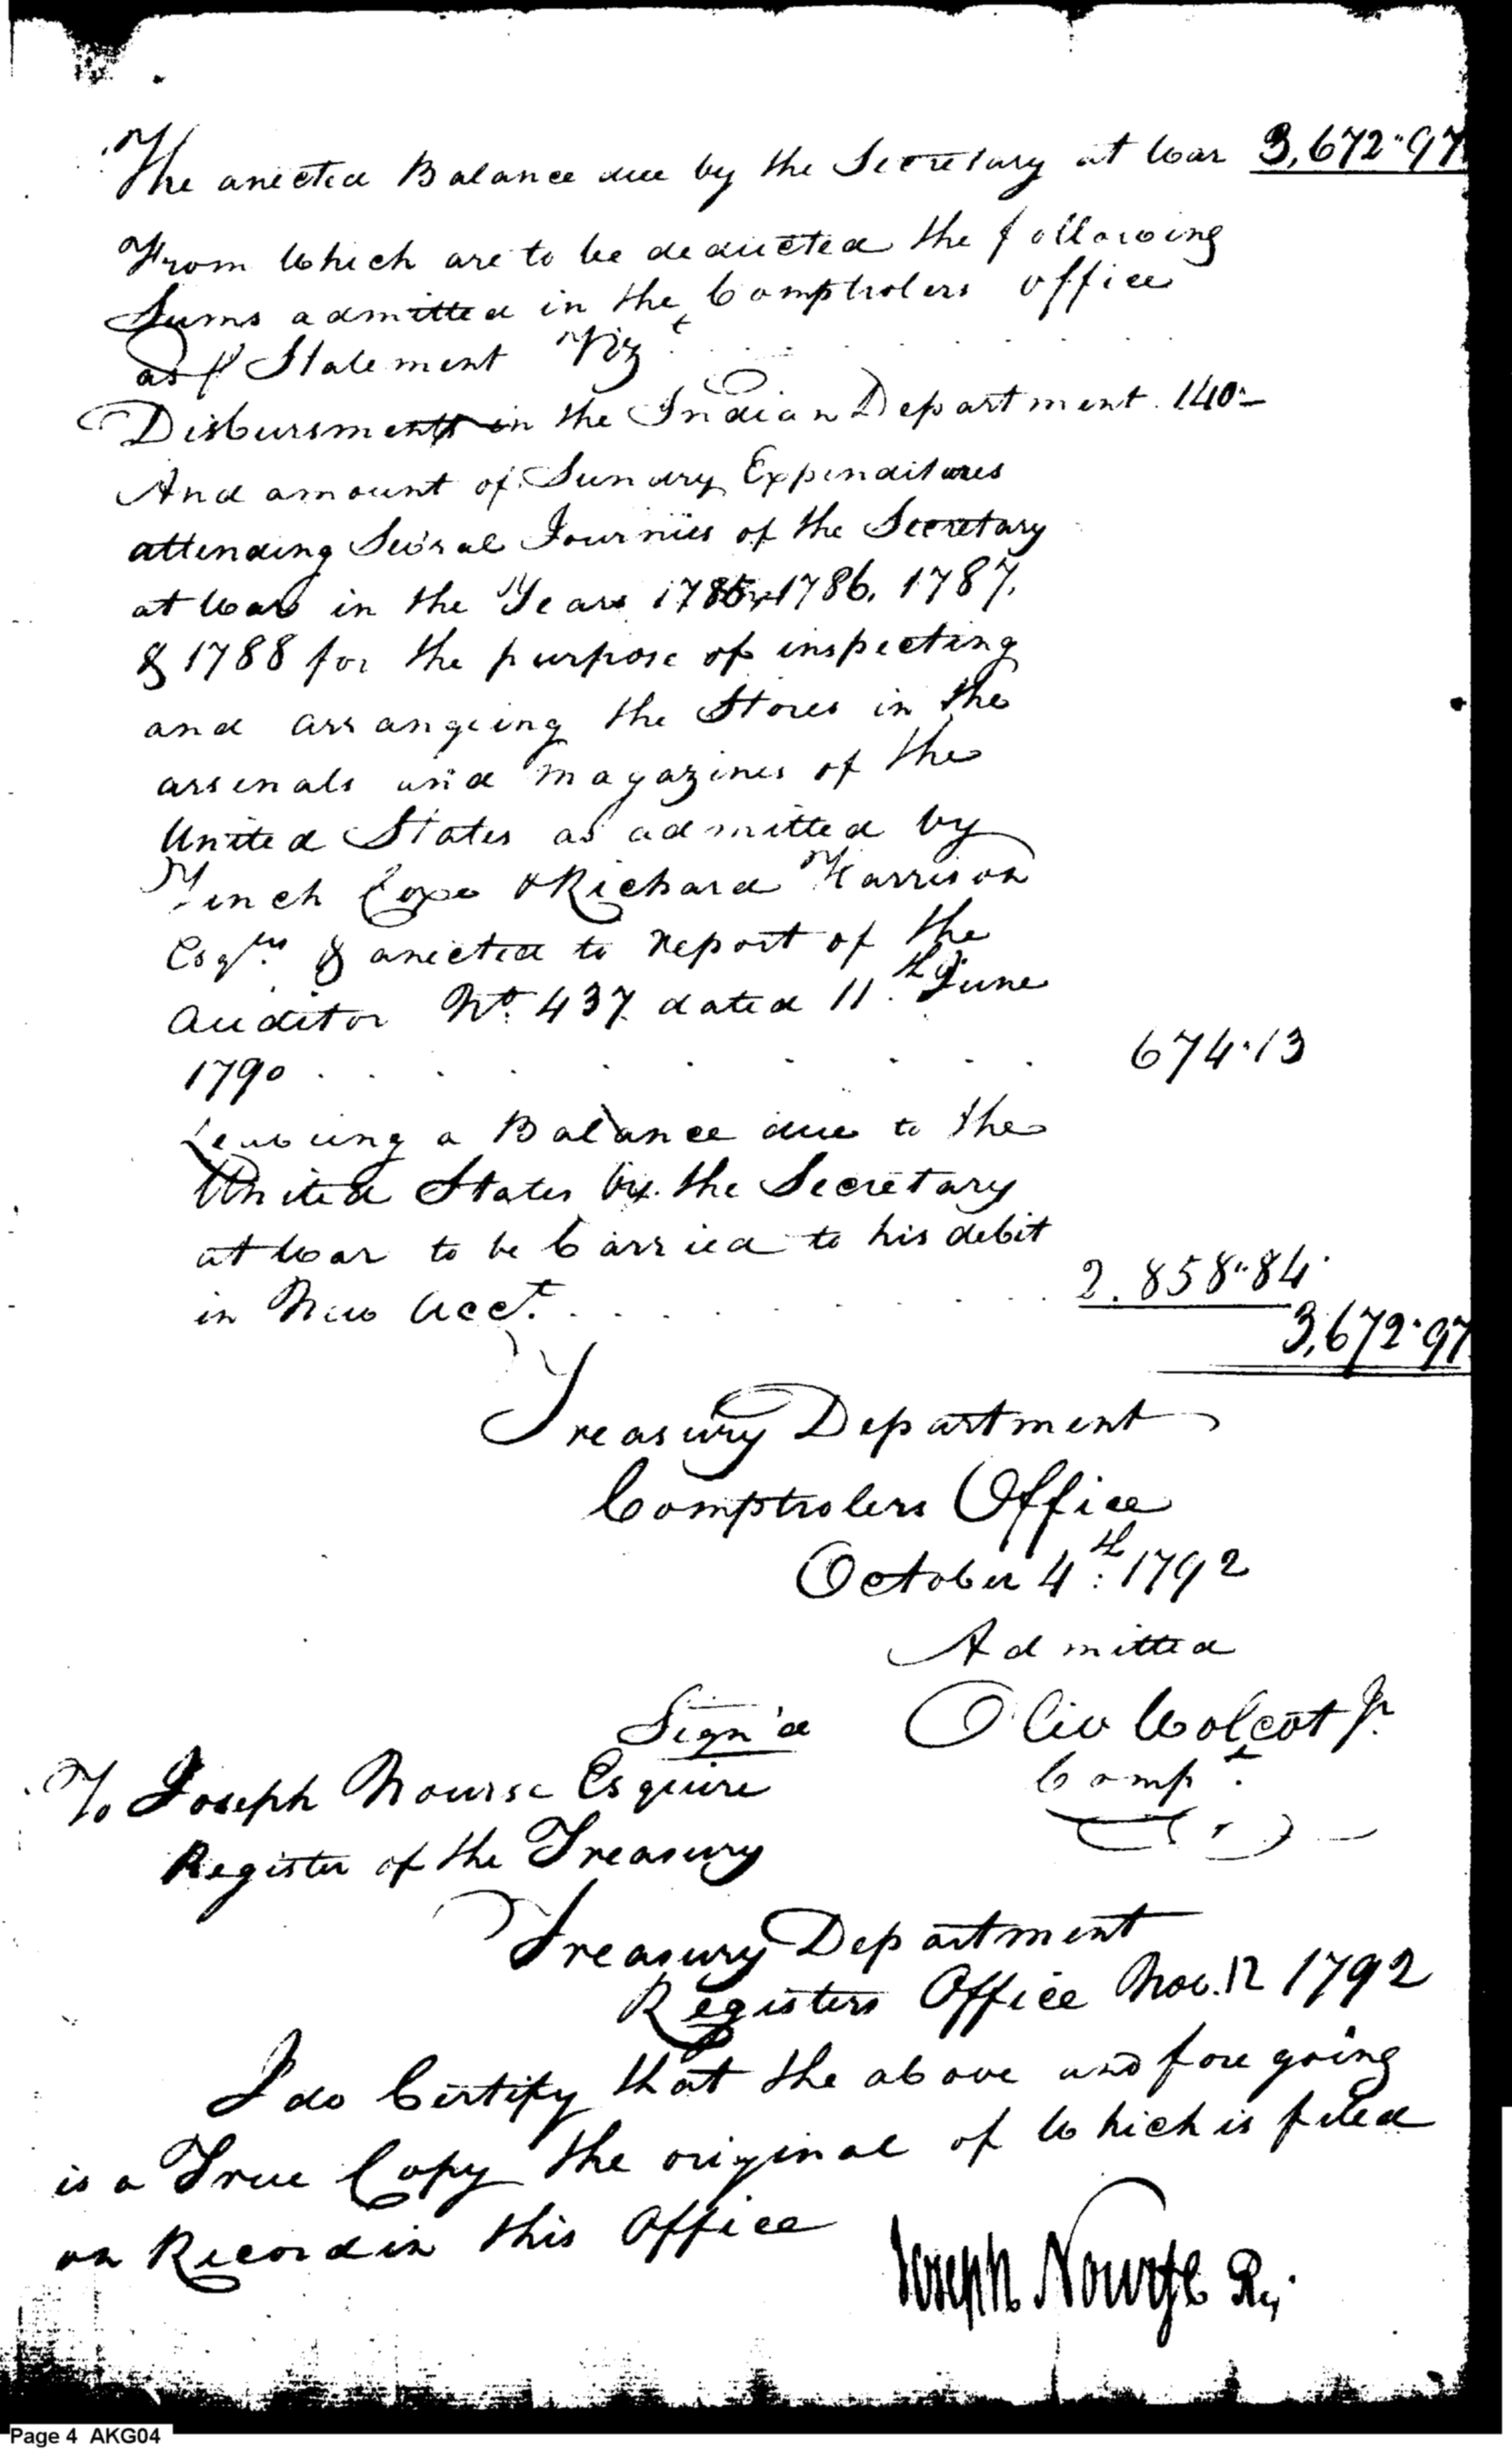 The anected Balance due by the Secretary at War 3,672"97
From Which are to be deducted the following
Sums admitted in the Comptrolers office
as ℙ Statement Vizt . . . . . . . .
Disbursments in the Indian Department. 140"–
And amount of Sundry Expenditures
attending Sev'ral Journies of the Secretary
at War in the Years 1785, 1786, 1787,
& 1788 for the purpose of inspecting
and arrangeing the Stores in the
arsenals and magazines of the
United States as admitted by
Tench Coxe & Richard Harrison
Esqrs. & anected to report of the
auditor No. 437 dated 11th June
1790 . . . . . . . . 674"13
Leaveing a Balance due to the
United States by the Secretary
at War to be Carried to his debit
in New Acct. . . . . . . . 2.858"84
3,672"97
Treasury Department
Comptrolers Office
October 4th: 1792
Admitted
Sign'd Oliv Wolcot Jr.
Compt.
To Joseph Nourse Esquire
Register of the Treasury
Treasury Department
Registers Office Nov. 12 1792
I do Certify that the above and fore going
is a True Copy the original of Which is filed
on Record in this Office
Joseph Nourse Rg.
Page 4 AKG04